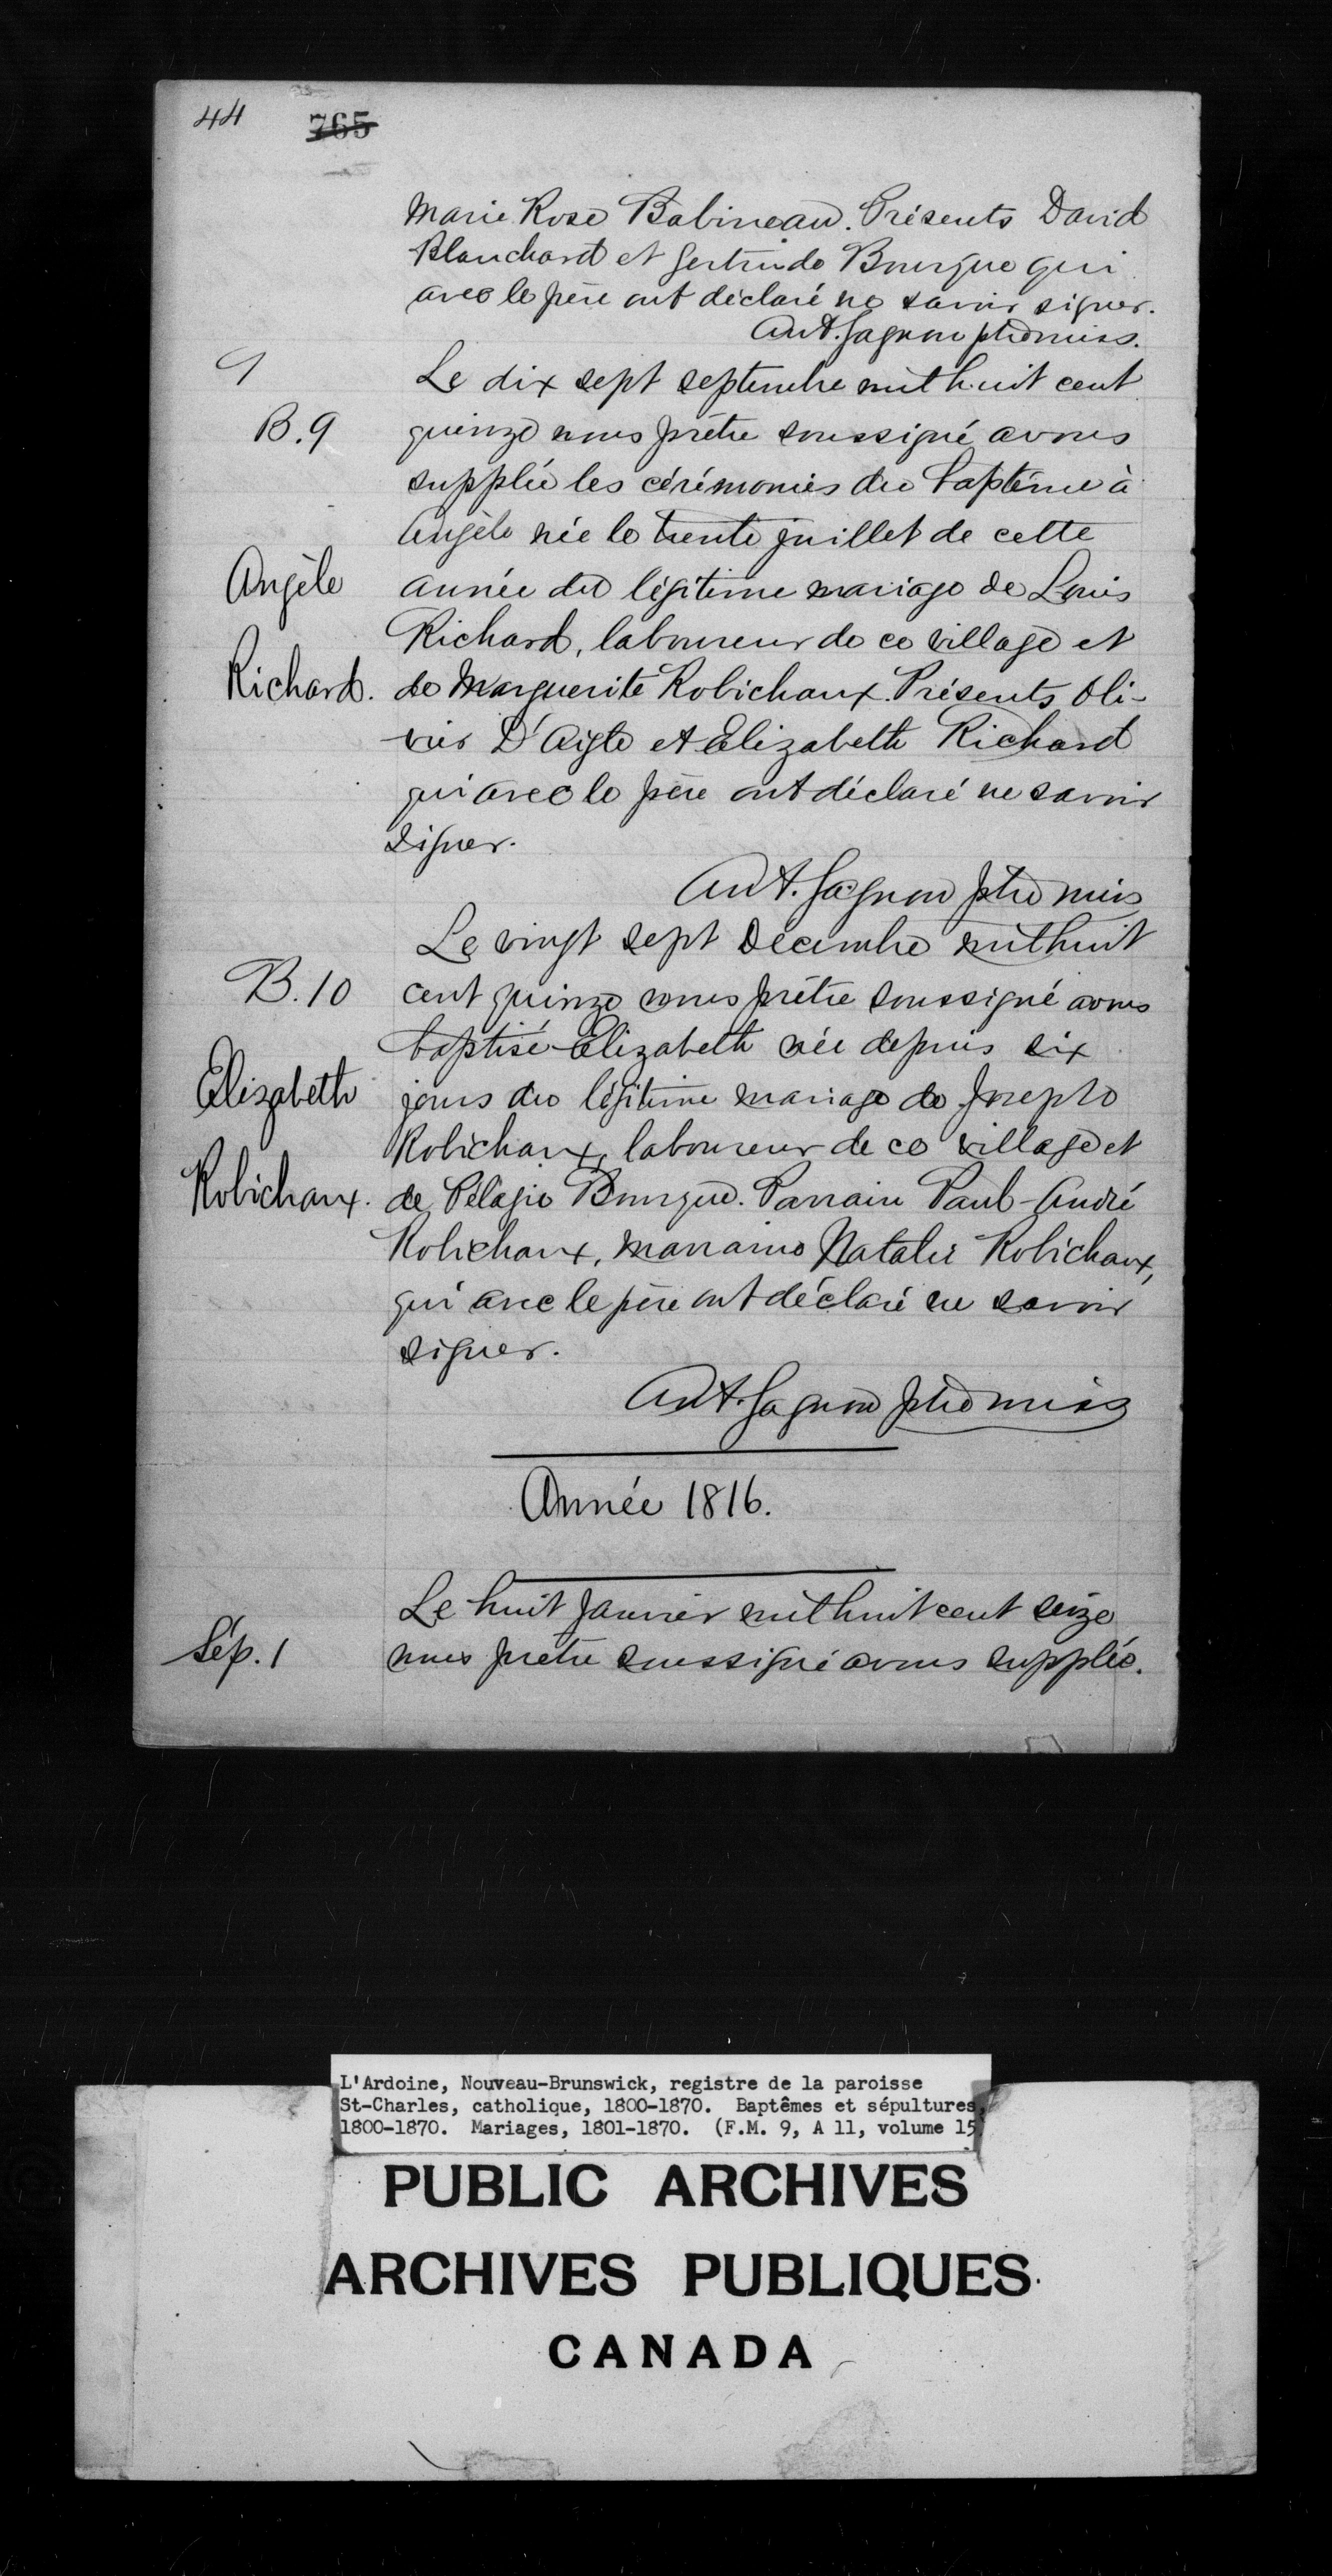 44 765
Marie Rose Babineau. Présents David
Blanchard et Gertrude Bourque qui
avec le père ont déclaré ne savoir signer.
Ant. Gagnon ptre miss.
Le dix sept septembre mil huit cent
B. 9 quinze nous prêtre soussigné avons
supplée les cérémonies du baptême à
Angèle née le trente juillet de cette
Angèle année du légitime mariage de Louis
Richard, laboureur de ce village et
Richard. de Marguerite Robichaux. Présents Oli-
vier D'Aigle et Elizabeth Richard
qui avec le père ont déclaré ne savoir
signer.
Ant. Gagnon ptre miss
Le vingt sept Decembre mil huit
B. 10 cent quinze nous prêtre soussigné avons
baptisé Elizabeth née depuis six
Elizabeth jours du légitime mariage de Joseph
Robichaux, laboureur de ce village et
Robichaux. de Pélagie Bourque. Parrain Paul-André
Robichaux, marraine Natalie Robichaux,
qui avec le père ont déclaré ne savoir
signer.
Ant. Gagnon ptre miss
Année 1816.
Le huit Janvier mil huit cent seize
Sép. 1 nous prêtre soussigné avons supplée.
L'Ardoine, Nouveau-Brunswick, registre de la paroisse
St-Charles, catholique, 1800-1870. Baptêmes et sépultures,
1800-1870. Mariages, 1801-1870. (F.M. 9, A 11, volume 15
PUBLIC ARCHIVES
ARCHIVES PUBLIQUES
CANADA